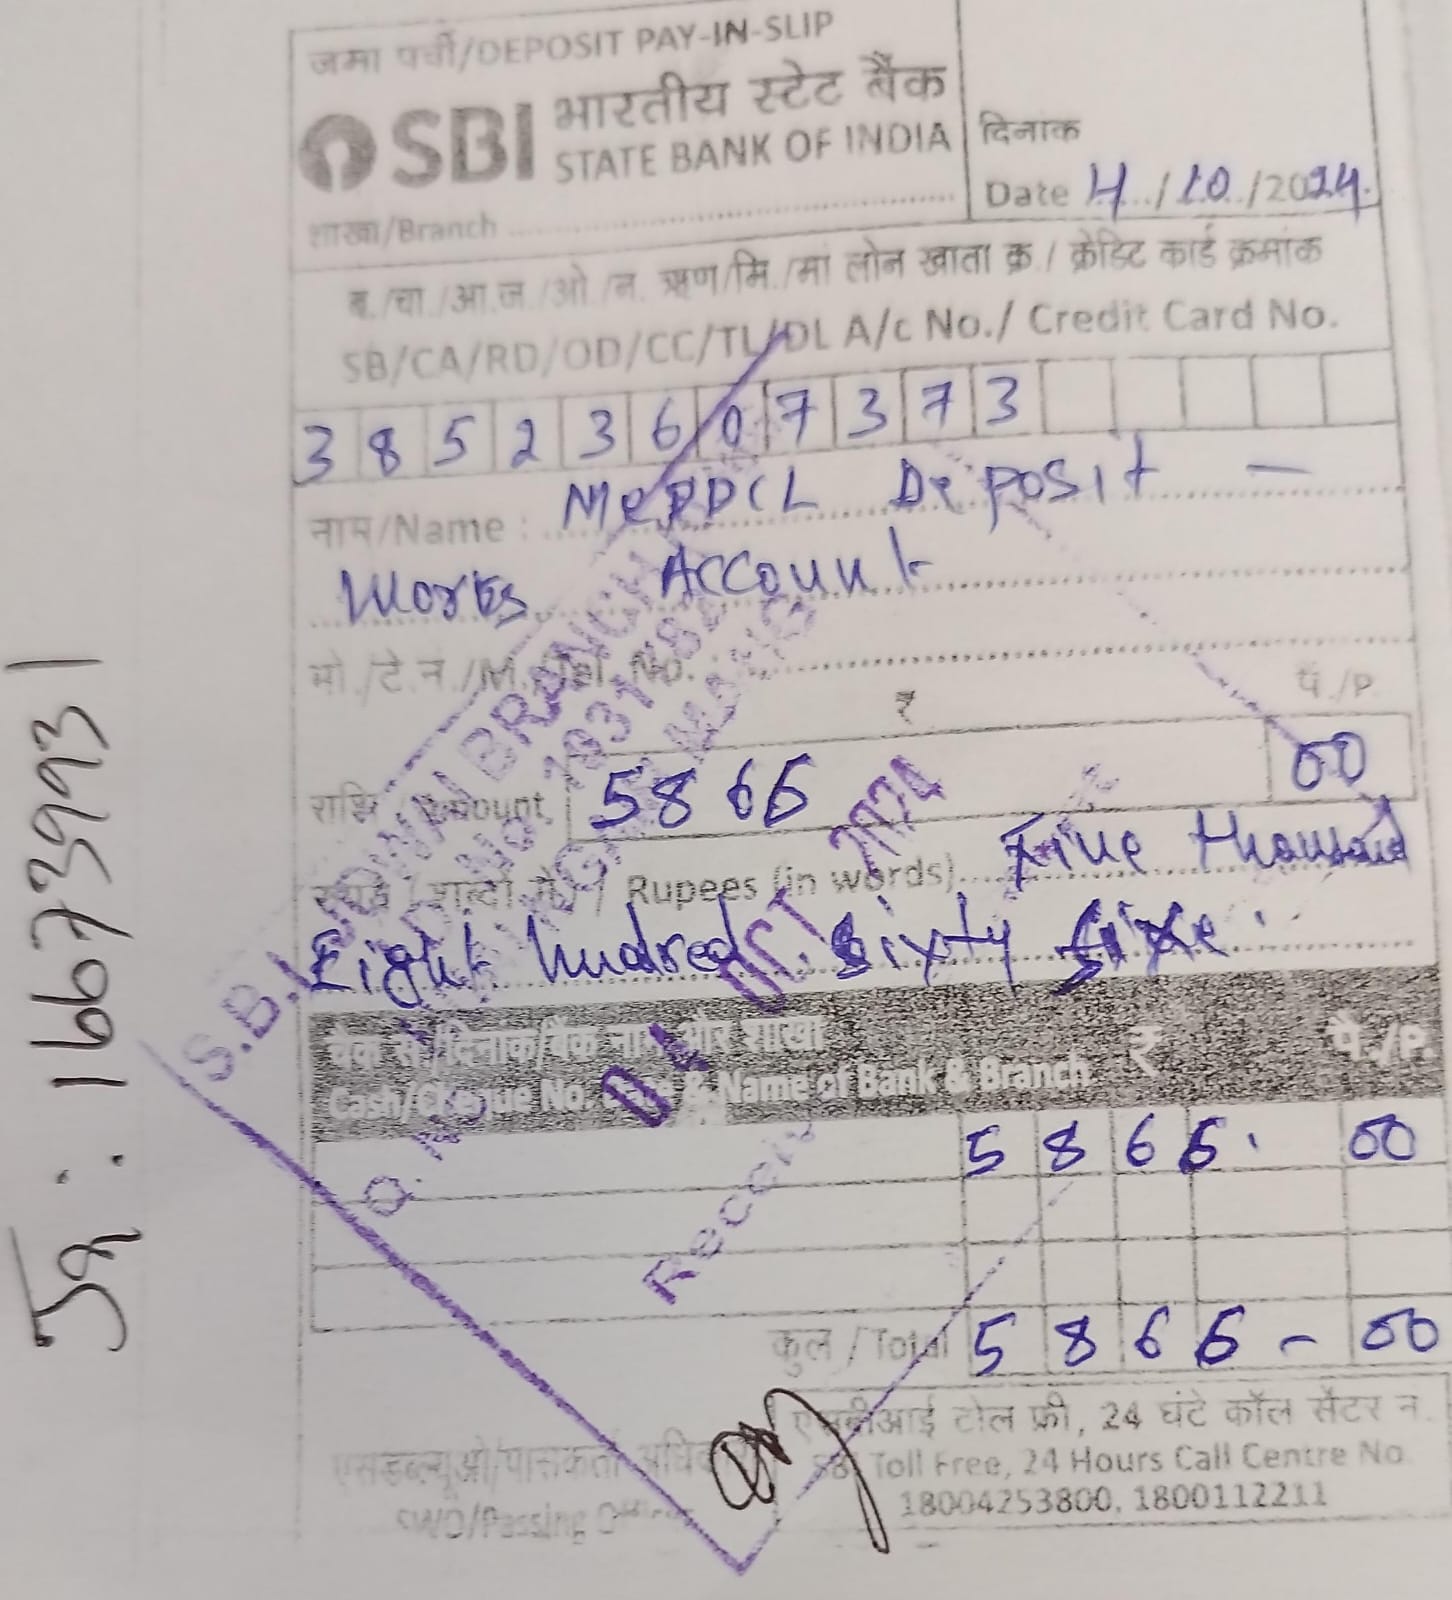 जमा पर्ची/DEPOSIT PAY-IN-SLIP
SBI भारतीय स्टेट बैंक
STATE BANK OF INDIA
दिनांक
Date 4/10/2024
शाखा/Branch
ब./चा./आ.ज./ओ./न. ऋण/मि./मां लोन खाता क्र / क्रेडिट कार्ड क्रमांक
SB/CA/RD/OD/CC/TL/DL A/c No./ Credit Card No.
38523607373
नाम/Name : MePDCL Deposit -
Works Account
मो./टे.न./M./Tel. No.
₹ पै./P.
राशि / Amount 5866 00
रुपये (शब्दों में) / Rupees (in words) Five thousand
Eight hundred sixty
चेक सं/दिनांक/बैंक नाम और शाखा ₹ पै./P.
Cash/Cheque No. Date & Name of Bank & Branch
5866. 00
कुल / Total 5866 - 00
एसडब्ल्यूओ/पासकर्ता अधिकारी
SWO/Passing Officer
एसबीआई टोल फ्री, 24 घंटे कॉल सेंटर न.
SBI Toll Free, 24 Hours Call Centre No.
18004253800, 1800112211
S.B.I. BRANCH
04 OCT 2024
: 166739931